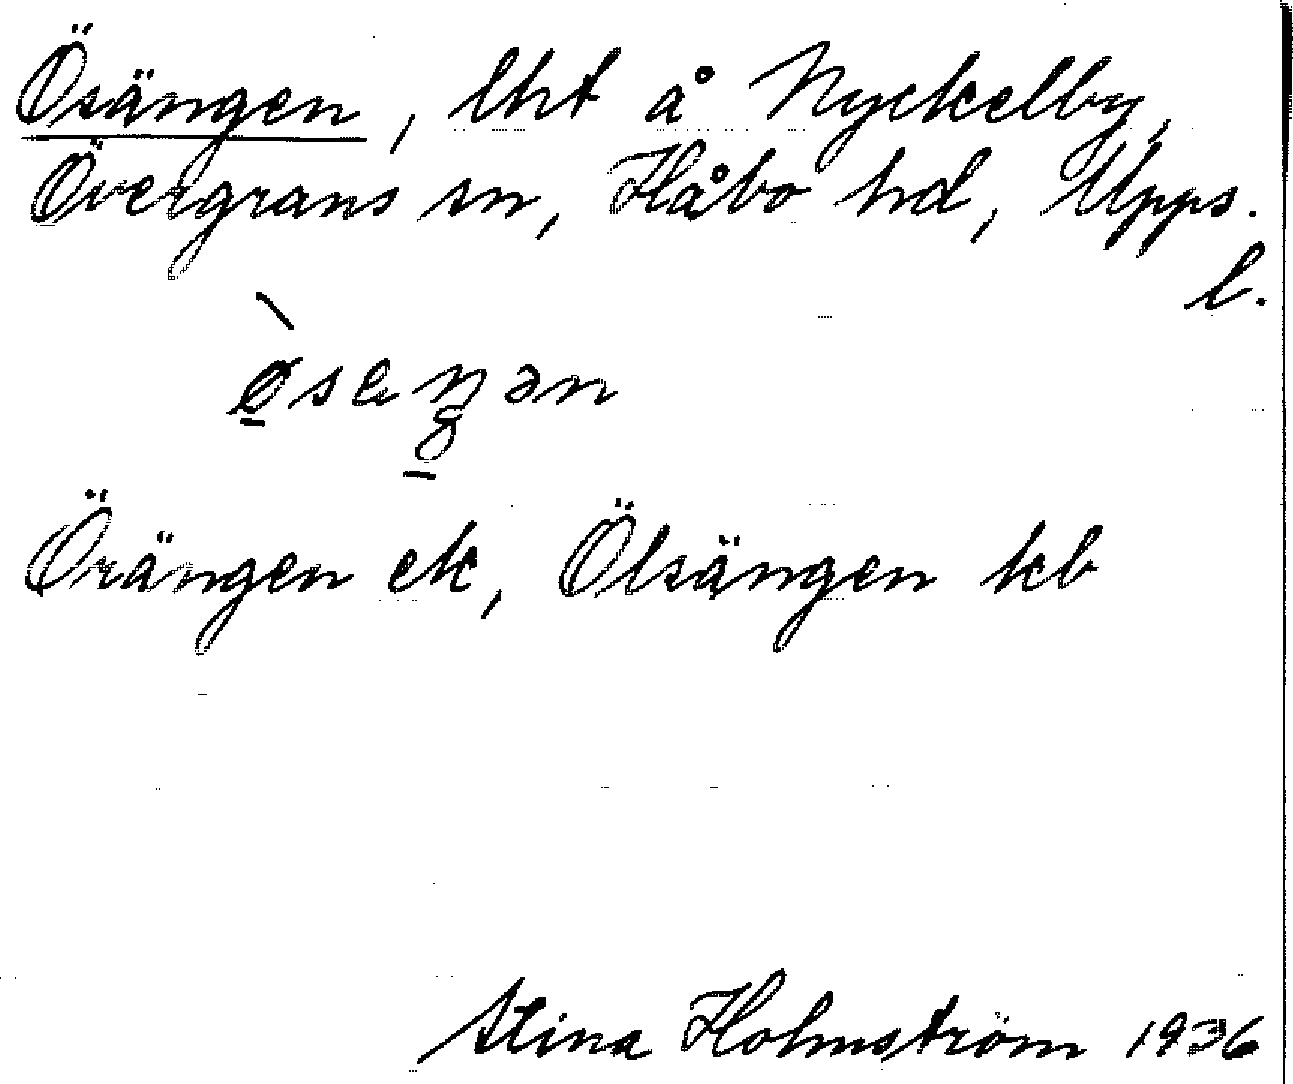 Ösängen, lht å Nyckelby,
Övergrans sn, Håbo hd, Upps.
l.
Örängen ek, Ölsängen kb
Stina Holmström 1936